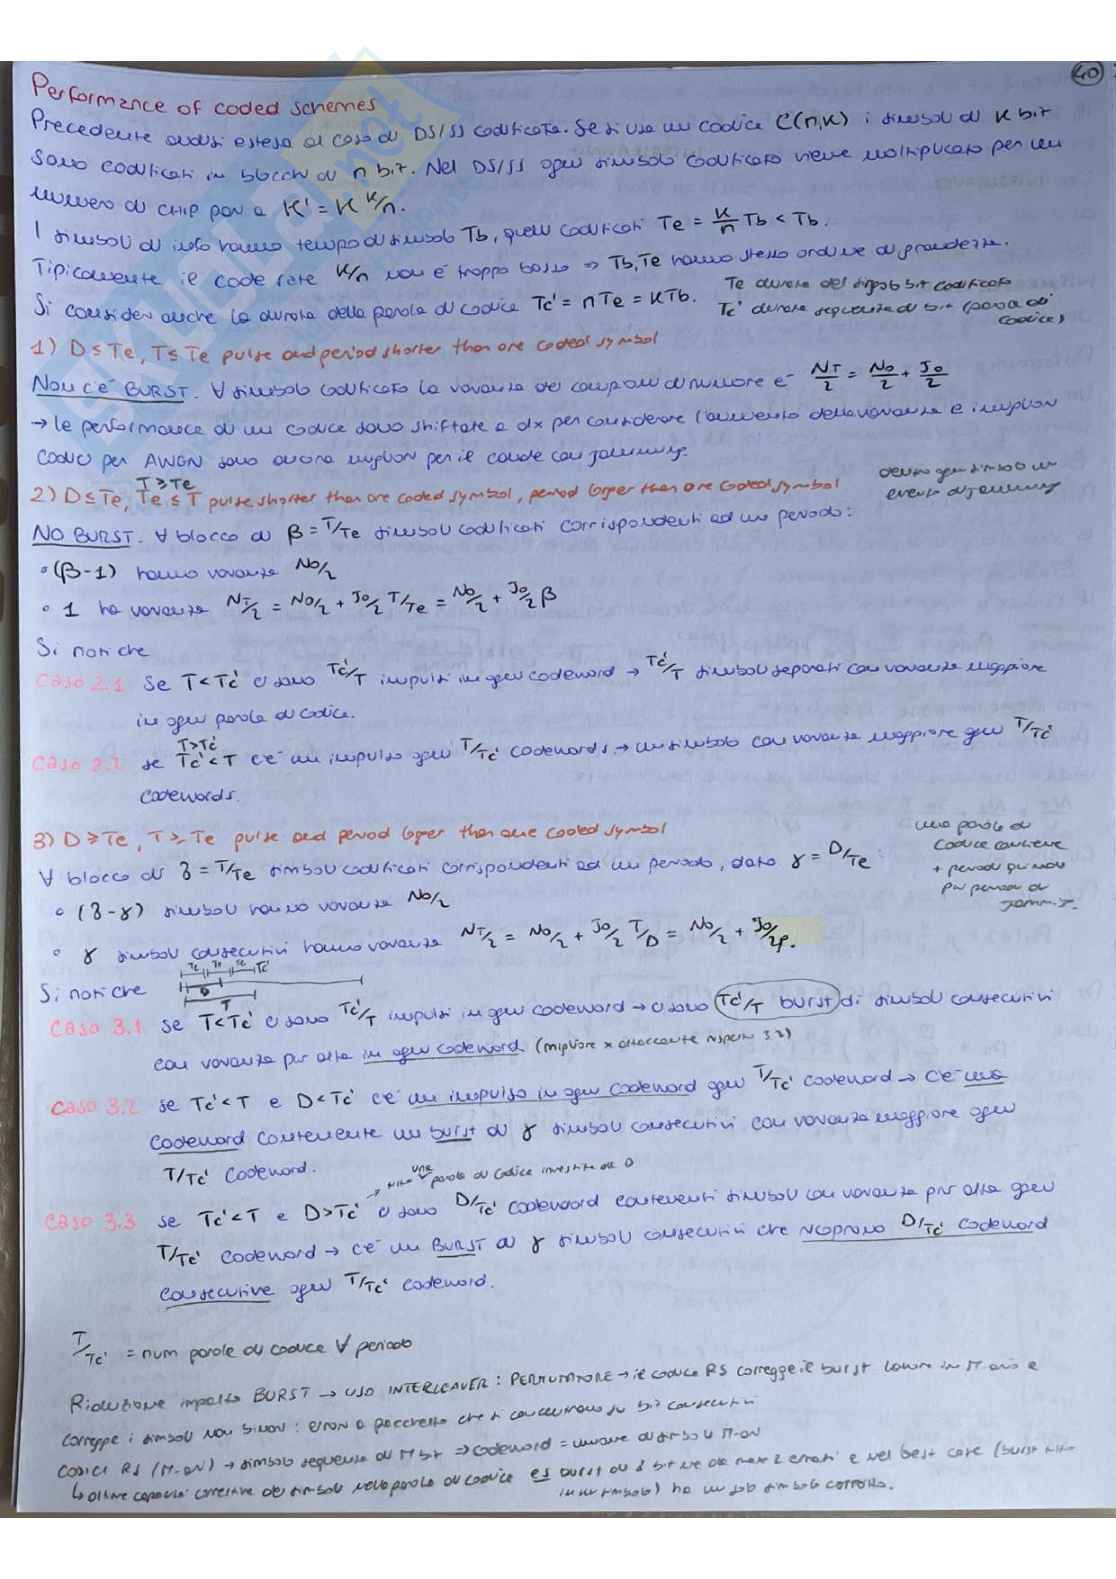 40
Performance of coded schemes
Precedente analisi estesa al caso di DS/SS codificata. Se si usa un codice C(n,k) i simboli di k bit
sono codificati in blocchi di n bit. Nel DS/SS ogni simbolo codificato viene moltiplicato per un
numero di CHIP pari a K' = K k/n.
I simboli di info hanno tempo di simbolo Tb, quelli codificati Te = k/n Tb < Tb.
Tipicamente il code rate k/n non è troppo basso ⇒ Tb, Te hanno stesso ordine di grandezza.
Si consideri anche la durata della parola di codice Tc' = nTe = kTb.
Te durata del singolo bit codificato
Tc' durata sequenza di bit (parola di
codice)
1) D ≤ Te, T ≤ Te pulse and period shorter than one coded symbol
Non c'è BURST. ∀ simbolo codificato la varianza dei campioni di rumore è NT/2 = N0/2 + J0/2
→ le performance di un codice sono shiftate a dx per considerare l'aumento della varianza e i migliori
codici per AWGN sono ancora migliori per il canale con jamming.
T ≥ Te
2) D ≤ Te, Te ≤ T pulse shorter than one coded symbol, period longer than one coded symbol
dentro ogni simbolo un
evento di jamming
NO BURST. ∀ blocco di β = T/Te simboli codificati corrispondenti ad un periodo:
• (β-1) hanno varianza N0/2
• 1 ha varianza NT/2 = N0/2 + J0/2 T/Te = N0/2 + J0/2 β
Si noti che
Caso 2.1 se T < Tc' ci sono Tc'/T impulsi in ogni codeword → Tc'/T simboli separati con varianza maggiore
in ogni parola di codice.
T > Tc'
Caso 2.2 se Tc' < T c'è un impulso ogni T/Tc' codewords → un simbolo con varianza maggiore ogni T/Tc'
codewords.
3) D ≥ Te, T ≥ Te pulse and period longer than one coded symbol
una parola di
codice contiene
+ periodi quindi
più periodi di
jamming.
∀ blocco di β = T/Te simboli codificati corrispondenti ad un periodo, dato γ = D/Te:
• (β-γ) simboli hanno varianza N0/2
• γ simboli consecutivi hanno varianza NT/2 = N0/2 + J0/2 T/D = N0/2 + J0/2ρ.
Te Te Te Tc'
D
T
Si noti che
Caso 3.1 se T < Tc' ci sono Tc'/T impulsi in ogni codeword → ci sono Tc'/T burst di simboli consecutivi
con varianza più alta in ogni codeword (migliore x attaccante rispetto 3.2)
Caso 3.2 se Tc' < T e D < Tc' c'è un impulso in ogni codeword ogni T/Tc' codeword → c'è una
codeword contenente un burst di γ simboli consecutivi con varianza maggiore ogni
T/Tc' codeword.
una
parola di codice investita da D
Caso 3.3 se Tc' < T e D > Tc' ci sono D/Tc' codeword contenenti simboli con varianza più alta ogni
T/Tc' codeword → c'è un BURST di γ simboli consecutivi che ricoprono D/Tc' codeword
consecutive ogni T/Tc' codeword.
T/Tc' = num parole di codice ∀ periodo
Riduzione impatto BURST → uso INTERLEAVER: PERMUTATORE → il codice RS corregge il burst lavora in M-ario e
corregge i simboli non binari: errori a pacchetto che si concentrano su bit consecutivi
CODICI RS (M-ARI) → simbolo sequenza di M bit ⇒ codeword = unione di simboli M-ARI
↳ ottime capacità correttive dei simboli nella parola di codice es burst di bit ne dà max 2 errati e nel best case (burst
in un simbolo) ho un solo simbolo corrotto.